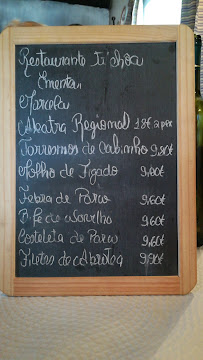 Restaurante Ti Choa
Ementa
Morcela
Alcatra Regional 18€ 2 pes
Torresmos de Cabinho 9,80€
Molho de Figado 9,00€
Febra de Porco 9,60€
Bife de Novilho 9,60€
Costeleta de Porco 9,60€
Filetes de Abrotea 9,80€